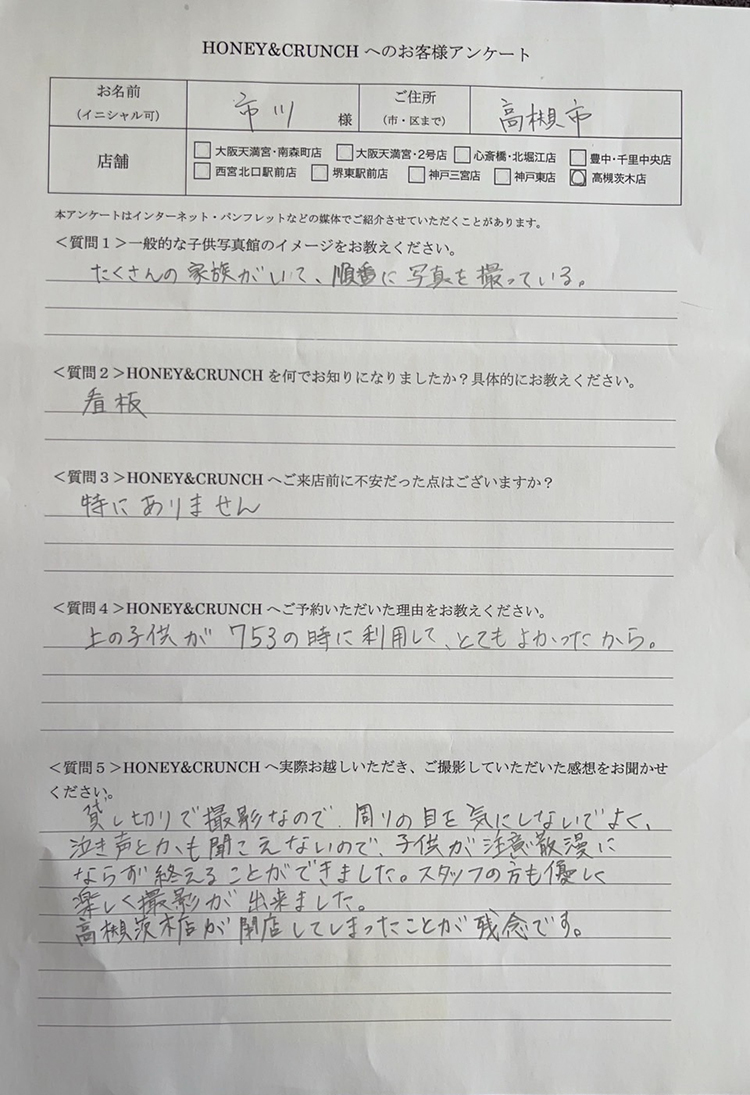 HONEY&CRUNCH へのお客様アンケート
お名前
(イニシャル可)
市川
様
ご住所
(市・区まで)
高槻市
店舗
大阪天満宮・南森町店 大阪天満宮・2号店 心斎橋・北堀江店 豊中・千里中央店
西宮北口駅前店 堺東駅前店 神戸三宮店 神戸東店 高槻茨木店
本アンケートはインターネット・パンフレットなどの媒体でご紹介させていただくことがあります。
＜質問１＞一般的な子供写真館のイメージをお教えください。
たくさんの家族がいて、順番に写真を撮っている。
＜質問２＞HONEY&CRUNCH を何でお知りになりましたか？具体的にお教えください。
看板
＜質問３＞HONEY&CRUNCH へご来店前に不安だった点はございますか？
特にありません
＜質問４＞HONEY&CRUNCH へご予約いただいた理由をお教えください。
上の子供が753の時に利用して、とてもよかったから。
＜質問５＞HONEY&CRUNCH へ実際お越しいただき、ご撮影していただいた感想をお聞かせ
ください。
貸し切りで撮影なので、周りの目を気にしないでよく、
泣き声とかも聞こえないので、子供が注意散漫に
ならず終えることができました。スタッフの方も優しく
楽しく撮影が出来ました。
高槻茨木店が閉店してしまったことが残念です。